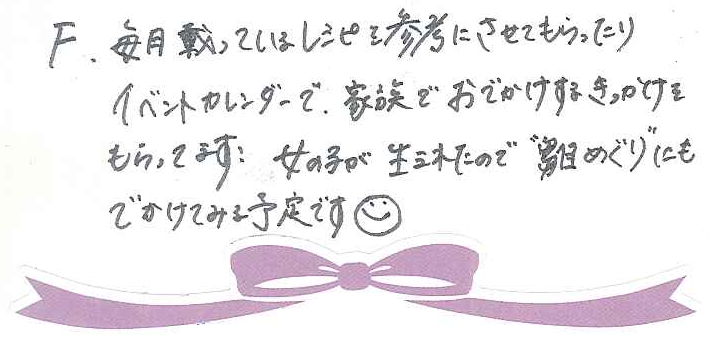 F. 毎月載っているレシピを参考にさせてもらったり
イベントカレンダーで、家族でおでかけするきっかけを
もらってます! 女の子が生まれたので"雛めぐり"にも
でかけてみる予定です